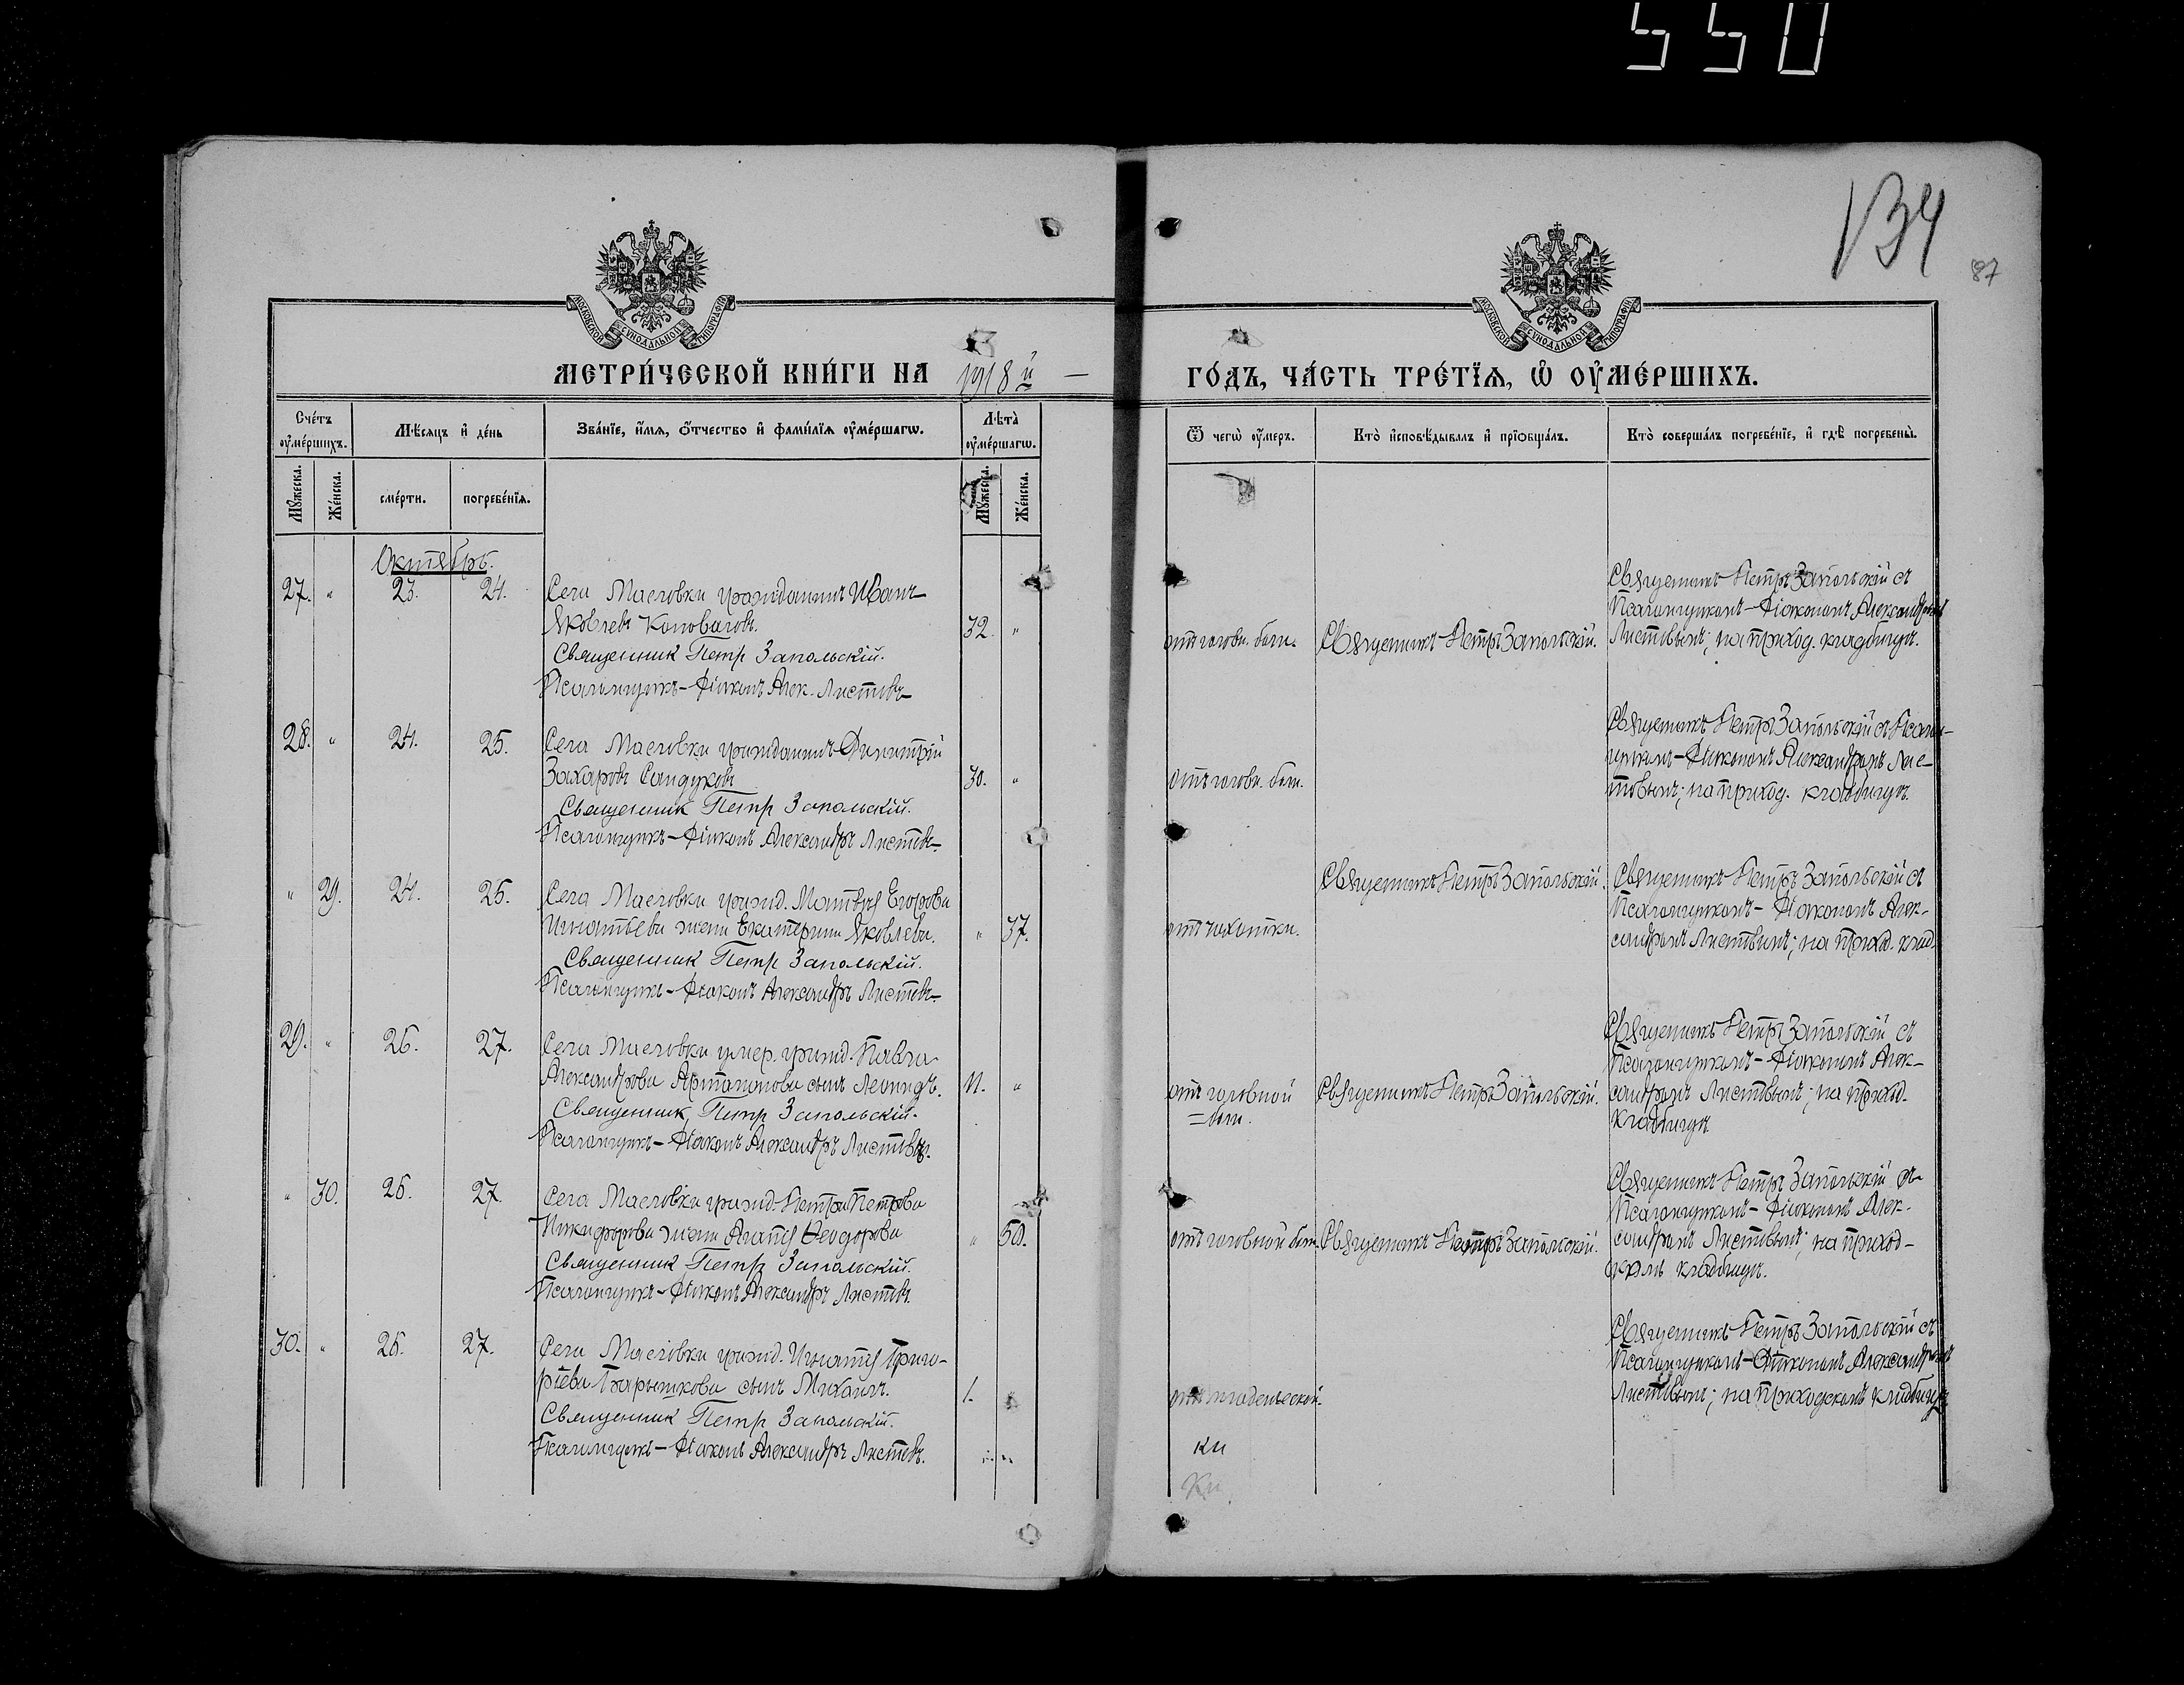 550
134
87
МОСКОВСКОЙ СѴНОДАЛЬНОЙ ТИПОГРАФІИ
МОСКОВСКОЙ СѴНОДАЛЬНОЙ ТИПОГРАФІИ
МЕТРИ́ЧЕСКОЙ КНИ́ГИ НА 1918й — ГО́ДЪ, ЧА́СТЬ ТРЕ́ТЇѦ, Ѡ҆ ОУ҆МЕ́РШИХЪ.
Сче́тъ оу҆ме́ршихъ.
Мѣ́сѧцъ и҆ де́нь
Зва́нїе, и҆́мѧ, ѻ҆́тчество и҆ фами́лїѧ оу҆ме́ршагѡ.
Лѣ́та оу҆ме́ршагѡ.
Ѿ чегѡ̀ оу҆́меръ.
Кто̀ и҆сповѣ́дывалъ и҆ прїѡбща́лъ.
Кто̀ соверша́лъ погребе́нїе, и҆ гдѣ̀ погребены̀.
Мꙋ́жеска.
Же́нска.
сме́рти.
погребе́нїѧ.
Мꙋ́жеска.
Же́нска.
Октябрь.
27. " 23. 24. Села Масловки гражданинъ Иванъ
Яковлевъ Коноваловъ. 32. "
Священник Петр Запольскій.
Псаломщикъ-Діаконъ Алек. Листовъ
отъ головн. боли. Священникъ Петръ Запольскій.
Священникъ Петръ Запольскій съ
Псаломщикомъ-Діакономъ Александромъ
Листовымъ; на приход. кладбищѣ.
28. " 24. 25. Села Масловки гражданинъ Димитрій
Захаровъ Сандуковъ 30. "
Священник Петр Запольскій.
Псаломщикъ-Діаконъ Александръ Листовъ
отъ головн. боли.
Священникъ Петръ Запольскій съ Псалом-
щикомъ-Діакономъ Александромъ Лис-
товымъ; на приход. кладбищѣ.
" 29. 24. 25. Села Масловки гражд. Матвѣя Егорова
Игнатьева жена Екатерина Яковлева. " 37.
Священник Петр Запольскій.
Псаломщикъ-Діаконъ Александръ Листовъ
отъ чахотки.
Священникъ Петръ Запольскій.
Священникъ Петръ Запольскій съ
Псаломщикомъ-Діакономъ Алек-
сандромъ Листовымъ; на приход. клад.
29. " 26. 27. Села Масловки умер. гражд. Павла
Александрова Артамонова сынъ Леонидъ. 11. "
Священник Петр Запольскій.
Псаломщикъ-Діаконъ Александръ Листовъ.
отъ головной
=боли.
Священникъ Петръ Запольскій.
Священникъ Петръ Запольскій съ
Псаломщикомъ-Діакономъ Алек-
сандромъ Листовымъ; на приход.
кладбищѣ
" 30. 26. 27. Села Масловки гражд. Петра Петрова
Никифорова жена Агапія Ѳеодорова " 50.
Священник Петр Запольскій.
Псаломщикъ-Діаконъ Александръ Листовъ.
отъ головной боли. Священникъ Петръ Запольскій.
Священникъ Петръ Запольскій съ
Псаломщикомъ-Діакономъ Алек-
сандромъ Листовымъ; на приход-
скомъ кладбищѣ.
30. " 26. 27. Села Масловки гражд. Игнатія Григо-
рьева Барышкова сынъ Михаилъ. 1.
Священник Петр Запольскій.
Псаломщикъ-Діаконъ Александръ Листовъ.
отъ младенческой.
Священникъ Петръ Запольскій съ
Псаломщикомъ-Діакономъ Александромъ
Листовымъ; на приходскомъ кладбищѣ